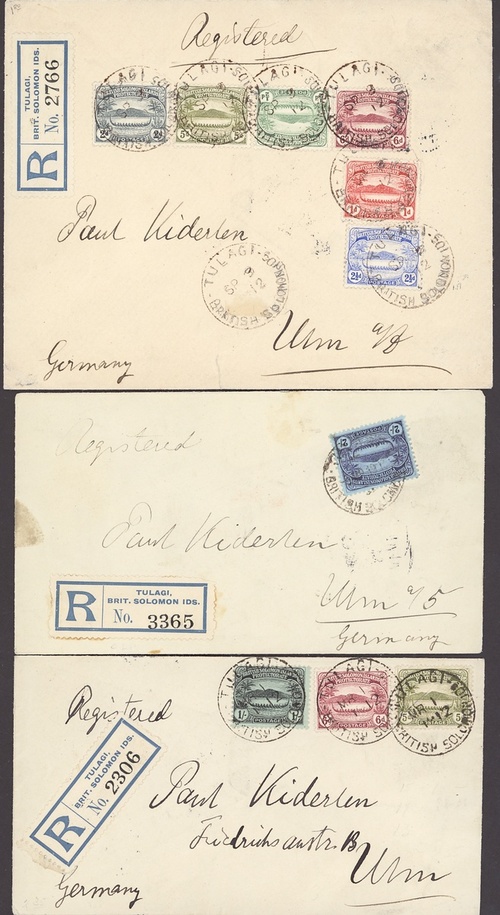 Registered
TULAGI,
BRIT. SOLOMON IDS.
R No. 2766
2d 2d
5d
6d
1d 1d
2½d 2½d
POSTAGE
TULAGI
BRITISH SOLOMON
SP 3
12
Paul Kiderlen
Ulm a/D
Germany
Registered
2/- 2/-
POSTAGE
Paul Kiderlen
TULAGI,
BRIT. SOLOMON IDS.
R No. 3365
Ulm
Germany
TULAGI
1/-
POSTAGE
6d
5d
BRITISH SOLOMON
Registered
TULAGI,
BRIT. SOLOMON IDS.
R No. 2306
Paul Kiderlen
Ulm
Germany